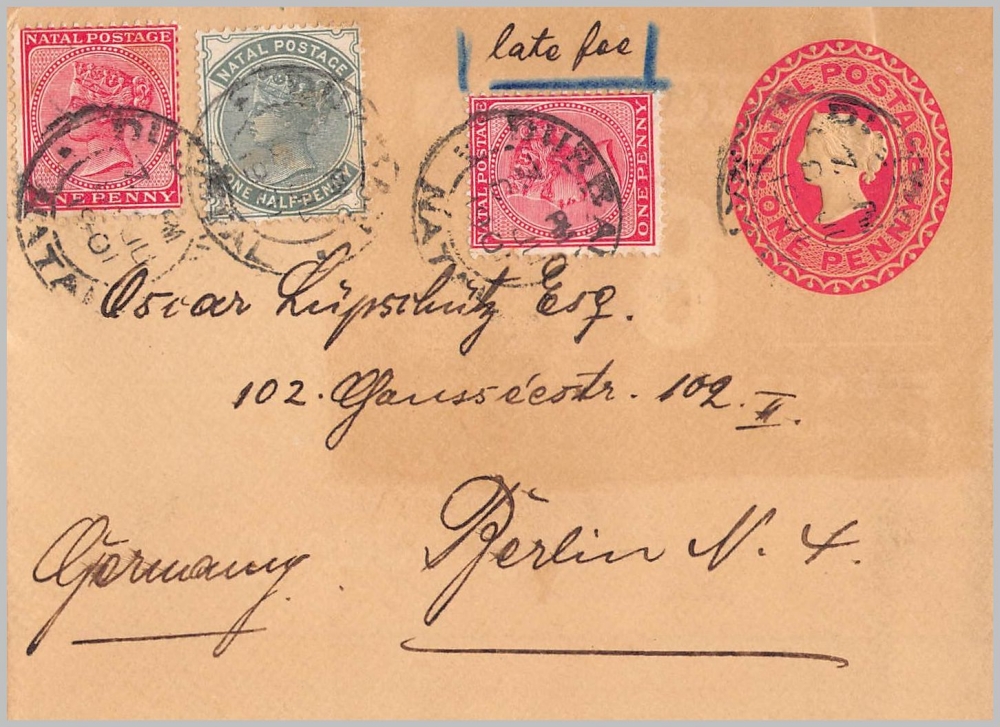 NATAL POSTAGE
ONE PENNY
NATAL POSTAGE
ONE HALF-PENNY
late fee
NATAL POSTAGE
ONE PENNY
NATAL POSTAGE
ONE PENNY
DURBAN
NATAL
Oscar Lüpschütz Esq.
102. Chausséestr. 102. II.
Berlin N. 4.
Germany.